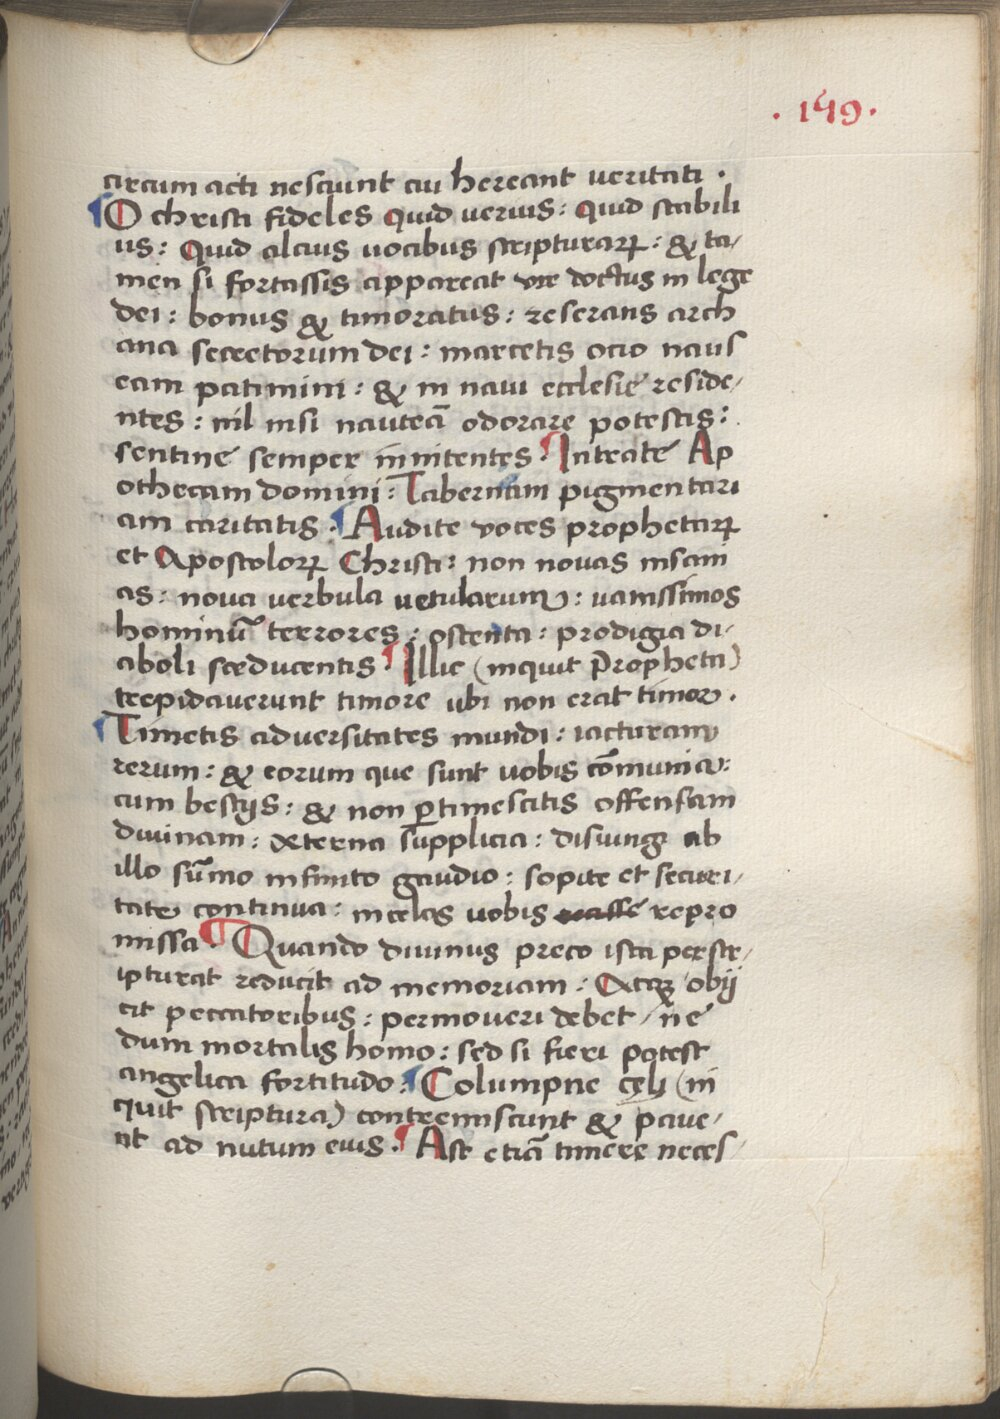 · 149 ·
circum acti nesciunt cui hereant veritati .
¶O christi fideles quid verius : quid stabili
us : Quid alcius uocibus scripturaꝝ : & ta/
men si fortassis appareat vir doctus in lege
dei : bonus & timoratus : reserans arch
ana secretorum dei : marcetis ocio naus
eam patimini : & in naui ecclesie reside/
ntes : nil nisi nauteā odorare potestis :
sentine semper innitentes . ¶Intrate Ap
othecam domini : Tabernam pigmentari
am caritatis . ¶Audite voces prophetaꝝ
et Apostoloꝝ Christi : non novas insani
as : nova verbula uetularum : uanissimos
hominū terrores : ostenta : prodigia di/
aboli seducentis ¶Illic (inquit Propheta)
trepidauerunt timore ubi non erat timor .
¶Timetis aduersitates mundi : iacturam
rerum : & eorum que sunt uobis cōmunia :
cum bestijs : & non ꝑtimescitis offensam
diuinam : æterna supplicia : disiungi ab
illo sūmo infinito gaudio : sopite et securi/
tate continua : in celis uobis repro
missa . ¶Quando diuinus preco ista per scr/
ipturat reducit ad memoriam : Atqꝫ obij
cit peccatoribus : permoueri debet / ne
dum mortalis homo : sed si fieri potest
angelica fortitudo : ¶Columpne cęli (in
quit scriptura) contremiscunt & paue/
nt ad nutum eius . ¶Ast etiā timere neces/